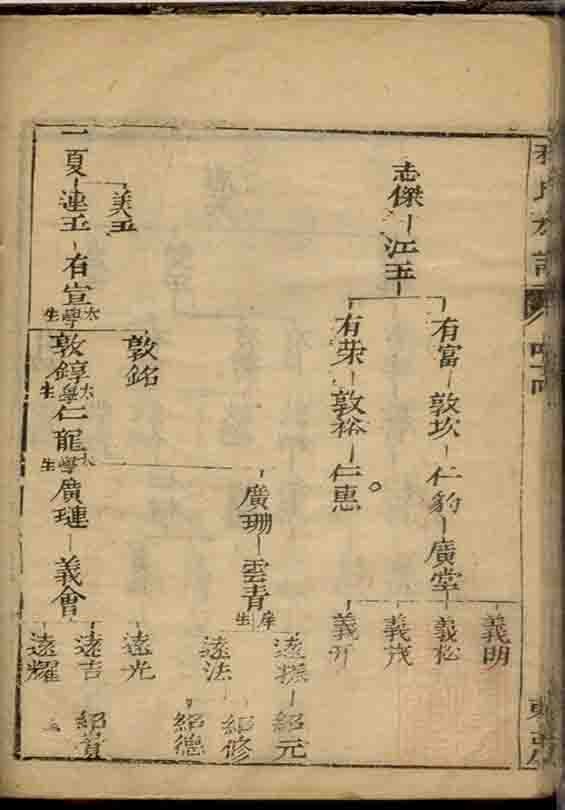 氏族譜
志傑
江玉
有富
敦坎
仁豹
廣堂
義明
義松
義茂
有荣
敦裕
仁惠
一夏
美玉
連玉
有宣太學生
敦銘
敦錞太學生
仁龍太學生
廣珊
雲青庠生
遠振
紹元
遠法
紹修
紹德
廣璉
義會
遠光
遠吉
紹賁
遠耀